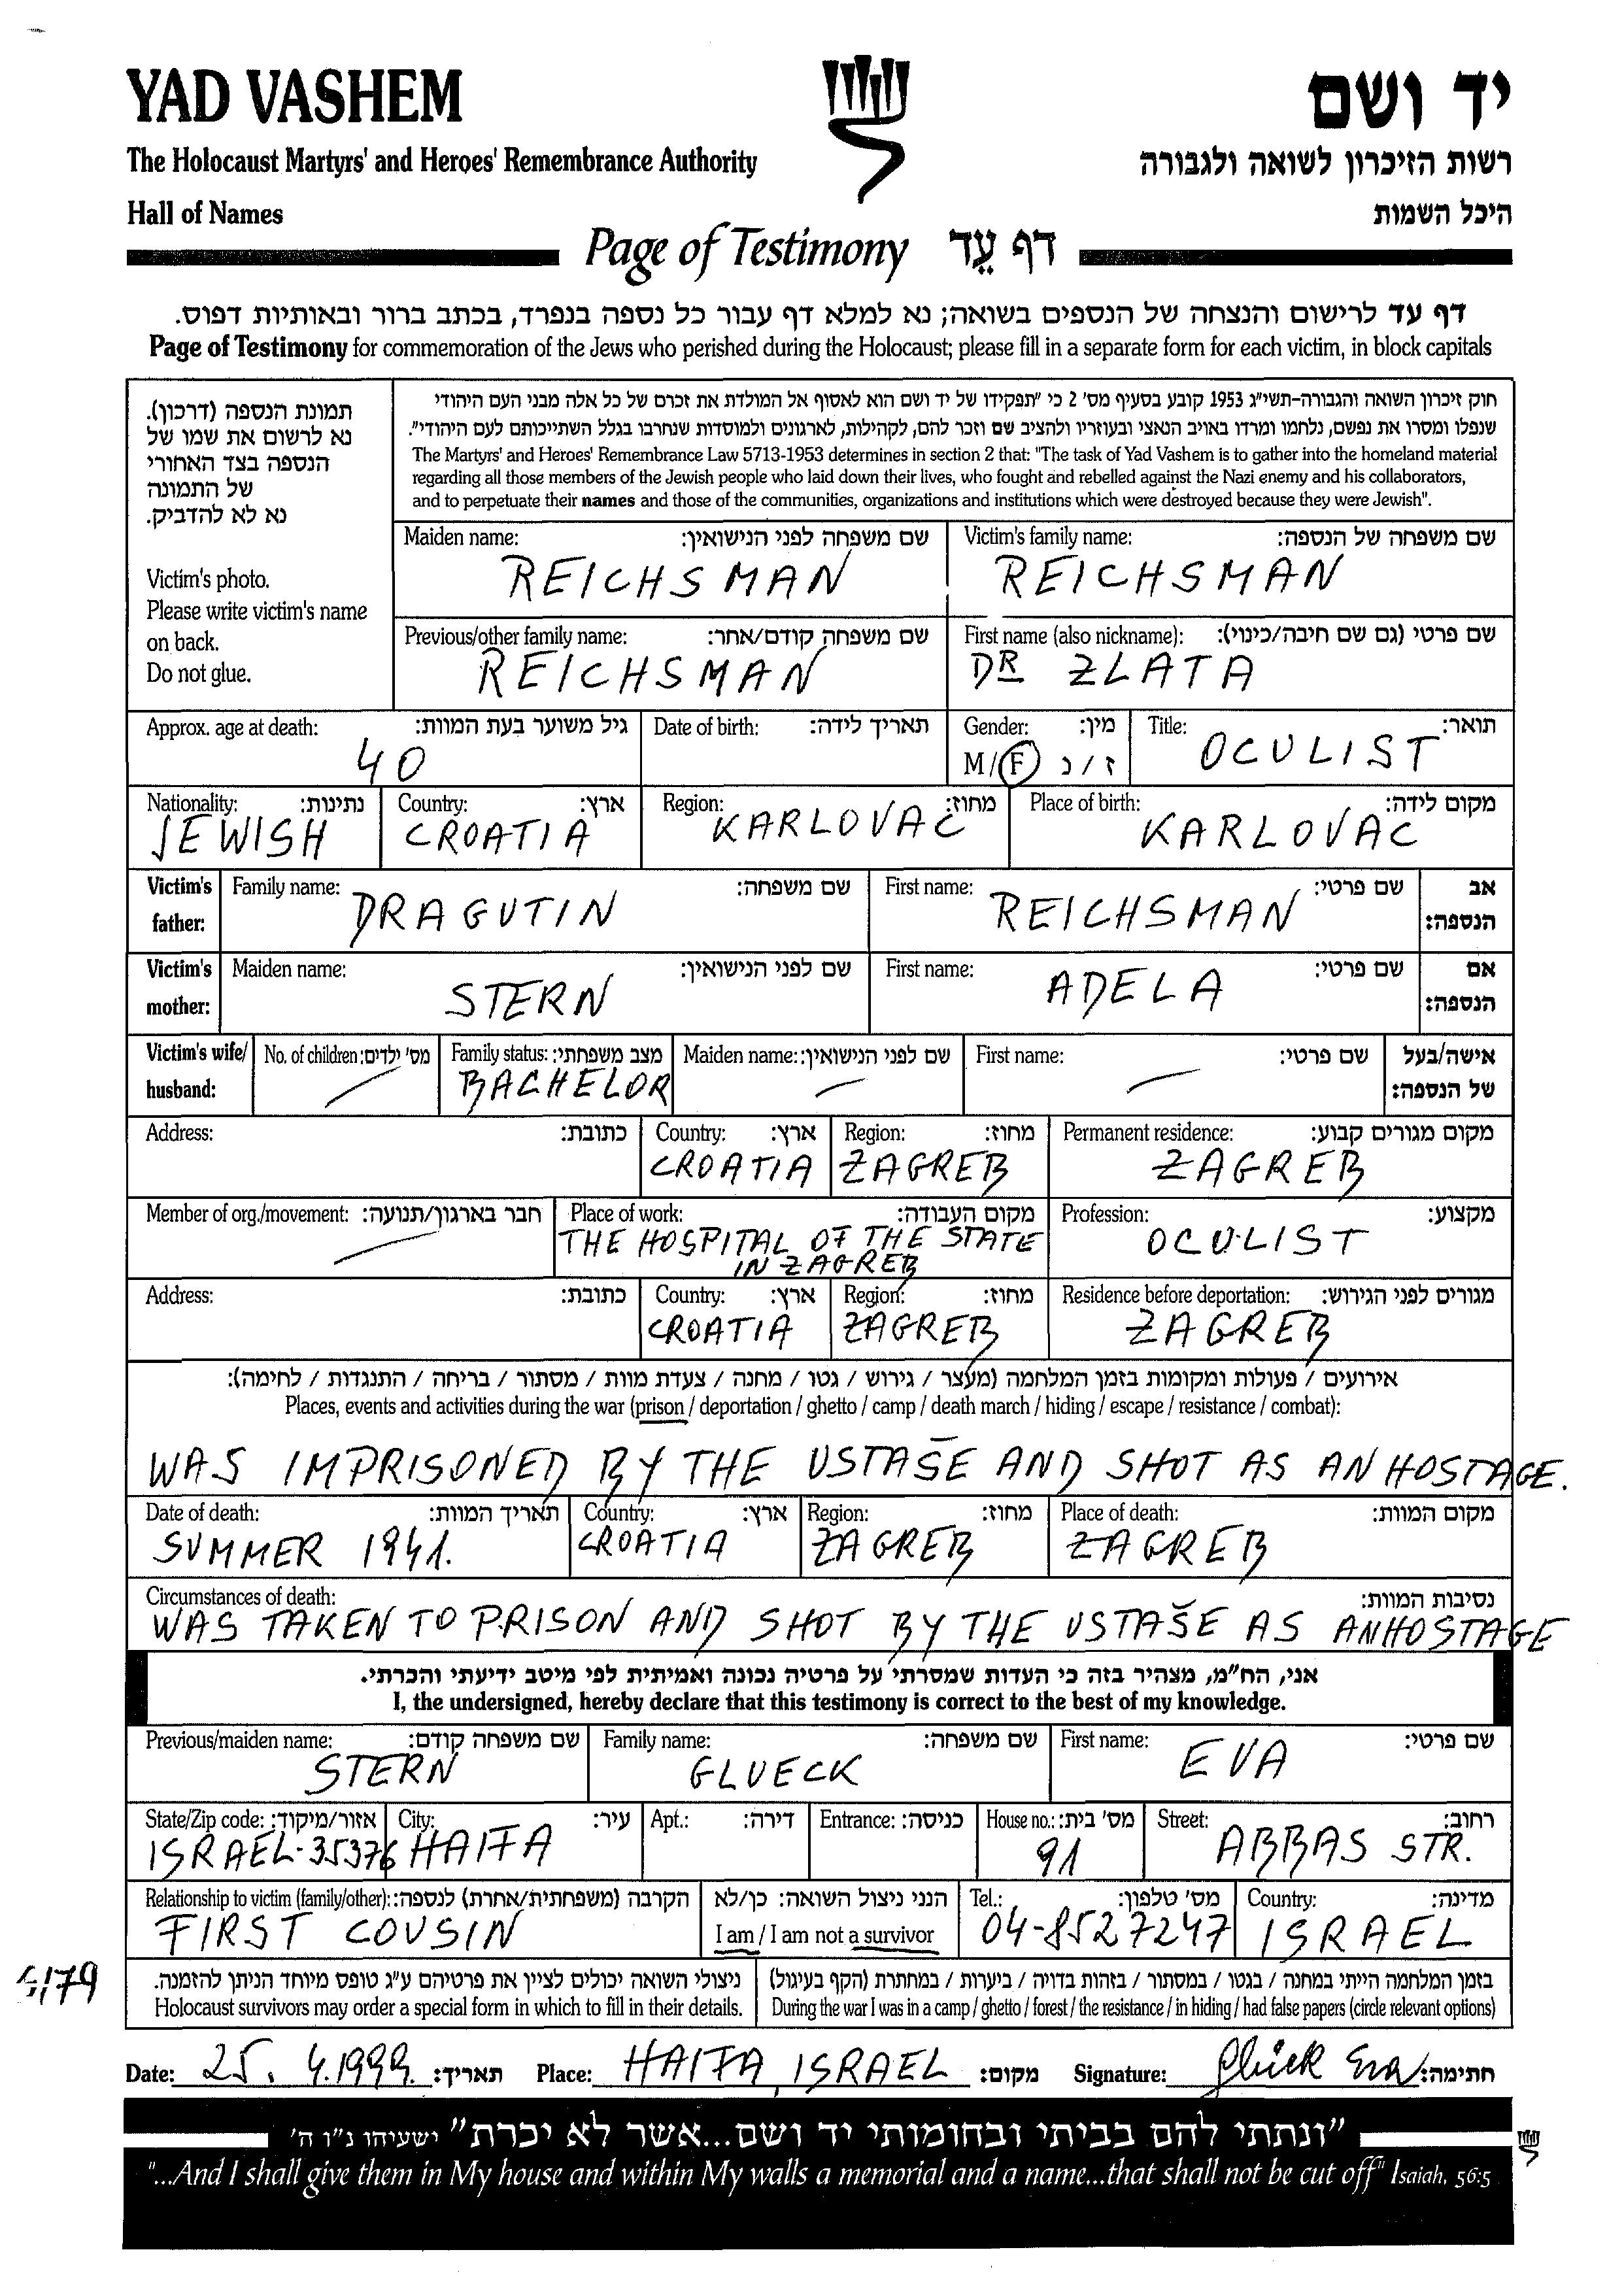 YAD VASHEM
יד ושם
The Holocaust Martyrs' and Heroes' Remembrance Authority
רשות הזיכרון לשואה ולגבורה
Hall of Names
היכל השמות
Page of Testimony דף עֵד
דף עד לרישום והנצחה של הנספים בשואה; נא למלא דף עבור כל נספה בנפרד, בכתב ברור ובאותיות דפוס.
Page of Testimony for commemoration of the Jews who perished during the Holocaust; please fill in a separate form for each victim, in block capitals
תמונת הנספה (דרכון).
נא לרשום את שמו של
הנספה בצד האחורי
של התמונה
נא לא להדביק.
Victim's photo.
Please write victim's name
on back.
Do not glue.
חוק זיכרון השואה והגבורה-תשי"ג 1953 קובע בסעיף מס' 2 כי "תפקידו של יד ושם הוא לאסוף אל המולדת את זכרם של כל אלה מבני העם היהודי
שנפלו ומסרו את נפשם, נלחמו ומרדו באויב הנאצי ובעוזריו ולהציב שם וזכר להם, לקהילות, לארגונים ולמוסדות שנחרבו בגלל השתייכותם לעם היהודי".
The Martyrs' and Heroes' Remembrance Law 5713-1953 determines in section 2 that: "The task of Yad Vashem is to gather into the homeland material
regarding all those members of the Jewish people who laid down their lives, who fought and rebelled against the Nazi enemy and his collaborators,
and to perpetuate their names and those of the communities, organizations and institutions which were destroyed because they were Jewish".
Maiden name: שם משפחה לפני הנישואין: Victim's family name: שם משפחה של הנספה:
REICHSMAN REICHSMAN
Previous/other family name: שם משפחה קודם/אחר: First name (also nickname): שם פרטי (גם שם חיבה/כינוי):
REICHSMAN DR ZLATA
Approx. age at death: גיל משוער בעת המוות: Date of birth: תאריך לידה: Gender: מין: Title: תואר:
40 M/F ז/נ OCULIST
Nationality: נתינות: Country: ארץ: Region: מחוז: Place of birth: מקום לידה:
JEWISH CROATIA KARLOVAC KARLOVAC
Victim's father: Family name: שם משפחה: First name: שם פרטי: אב הנספה:
DRAGUTIN REICHSMAN
Victim's mother: Maiden name: שם לפני הנישואין: First name: שם פרטי: אם הנספה:
STERN ADELA
Victim's wife/ husband: No. of children: מס' ילדים: Family status: מצב משפחתי: Maiden name: שם לפני הנישואין: First name: שם פרטי: אישה/בעל של הנספה:
BACHELOR
Address: כתובת: Country: ארץ: Region: מחוז: Permanent residence: מקום מגורים קבוע:
CROATIA ZAGREB ZAGREB
Member of org./movement: חבר בארגון/תנועה: Place of work: מקום העבודה: Profession: מקצוע:
THE HOSPITAL OF THE STATE OCULIST
IN ZAGREB
Address: כתובת: Country: ארץ: Region: מחוז: Residence before deportation: מגורים לפני הגירוש:
CROATIA ZAGREB ZAGREB
אירועים / פעולות ומקומות בזמן המלחמה (מעצר / גירוש / גטו / מחנה / צעדת מוות / מסתור / בריחה / התנגדות / לחימה):
Places, events and activities during the war (prison / deportation / ghetto / camp / death march / hiding / escape / resistance / combat):
WAS IMPRISONED BY THE USTAŠE AND SHOT AS AN HOSTAGE.
Date of death: תאריך המוות: Country: ארץ: Region: מחוז: Place of death: מקום המוות:
SUMMER 1941. CROATIA ZAGREB ZAGREB
Circumstances of death: נסיבות המוות:
WAS TAKEN TO PRISON AND SHOT BY THE USTAŠE AS AN HOSTAGE
אני, הח"מ, מצהיר בזה כי העדות שמסרתי על פרטיה נכונה ואמיתית לפי מיטב ידיעתי והכרתי.
I, the undersigned, hereby declare that this testimony is correct to the best of my knowledge.
Previous/maiden name: שם משפחה קודם: Family name: שם משפחה: First name: שם פרטי:
STERN GLUECK EVA
State/Zip code: אזור/מיקוד: City: עיר: Apt.: דירה: Entrance: כניסה: House no.: מס' בית: Street: רחוב:
ISRAEL-35376 HAIFA 91 ABBAS STR.
Relationship to victim (family/other): הקרבה (משפחתית/אחרת) לנספה: הנני ניצול השואה: כן/לא Tel.: מס' טלפון: Country: מדינה:
FIRST COUSIN I am / I am not a survivor 04-8527247 ISRAEL
ניצולי השואה יכולים לציין את פרטיהם ע"ג טופס מיוחד הניתן להזמנה. בזמן המלחמה הייתי במחנה / בגטו / במסתור / בזהות בדויה / ביערות / במחתרת (הקף בעיגול)
Holocaust survivors may order a special form in which to fill in their details. During the war I was in a camp / ghetto / forest / the resistance / in hiding / had false papers (circle relevant options)
Date: 25. 4.1999. תאריך: Place: HAIFA, ISRAEL מקום: Signature: Glück Eva חתימה:
"ונתתי להם בביתי ובחומותי יד ושם...אשר לא יכרת" ישעיהו נ"ו ה'
"...And I shall give them in My house and within My walls a memorial and a name...that shall not be cut off" Isaiah, 56:5